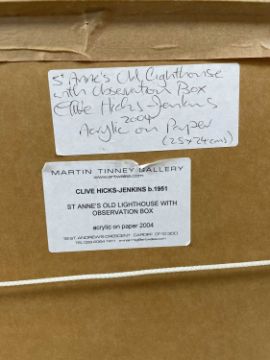 St Anne's Old Lighthouse
with Observation Box
Clive Hicks-Jenkins
2004
Acrylic on Paper
(25x24cms)
MARTIN TINNEY GALLERY
www.artwales.com
CLIVE HICKS-JENKINS b.1951
ST ANNE'S OLD LIGHTHOUSE WITH
OBSERVATION BOX
acrylic on paper 2004
ST ANDREW'S CRESCENT CARDIFF